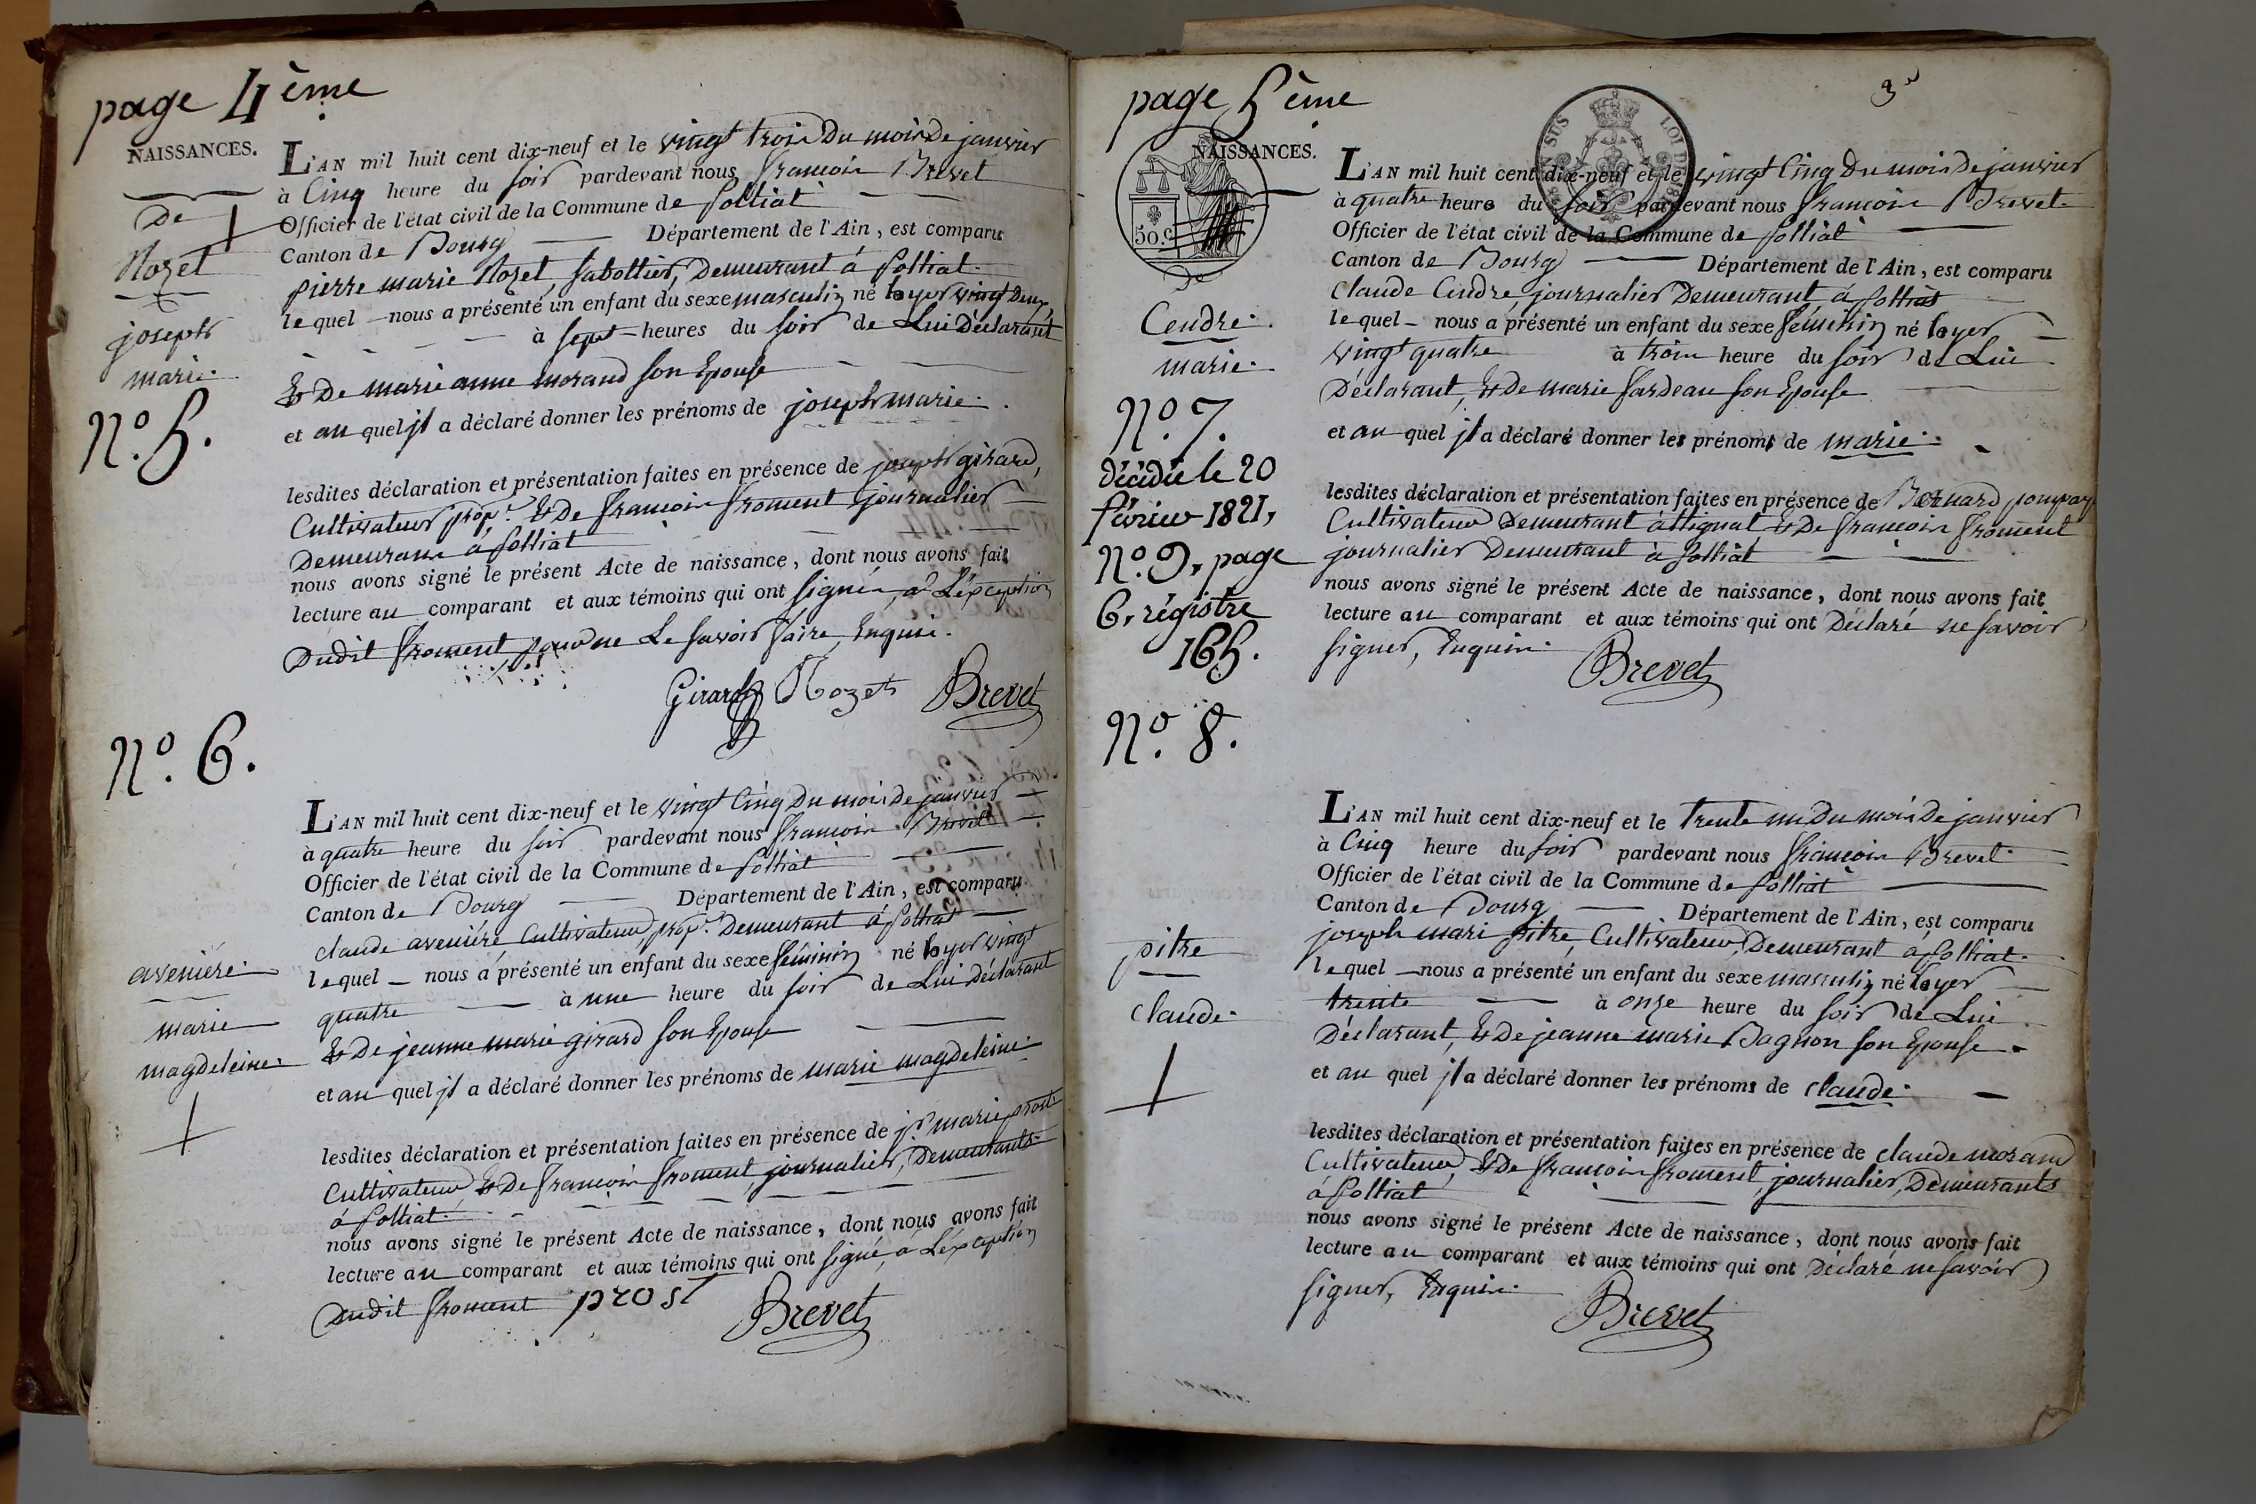 page 4 ème
NAISSANCES.
De
Nozet
joseph
marie.
N.º 5.
L'AN mil huit cent dix-neuf et le vingt trois Du mois De janvier
à Cinq heure du soir pardevant nous françois Brevet
Officier de l'état civil de la Commune de polliat
Canton de Bourg Département de l'Ain, est comparu
pierre marie Nozet, sabottier, Demeurant à polliat.
lequel nous a présenté un enfant du sexe masculin né le yer vingt Deux
à sept heures du soir de Lui Déclarant
& De marie anne morand son Epouse
et au quel jl a déclaré donner les prénoms de joseph marie.
lesdites déclaration et présentation faites en présence de joseph girard,
Cultivateur prop.re & De françois froment journalier
Demeurans à polliat
nous avons signé le présent Acte de naissance, dont nous avons fait
lecture au comparant et aux témoins qui ont signés, à L'éxception
Dudit froment pour ne Le savoir faire, Enquis.
Girard Nozet Brevet
N.º 6.
avenière.
marie
magdeleine.
L'AN mil huit cent dix-neuf et le vingt Cinq Du mois De janvier
à quatre heure du soir pardevant nous françois Brevet
Officier de l'état civil de la Commune de polliat
Canton de Bourg Département de l'Ain, est comparu
claude avenière Cultivateur, prop.re Demeurant à polliat
lequel nous a présenté un enfant du sexe féminin né le yer vingt
quatre à une heure du soir de Lui Déclarant
& De jeanne marie girard son Epouse
et au quel jl a déclaré donner les prénoms de marie magdeleine.
lesdites déclaration et présentation faites en présence de jh marie prost
Cultivateur & De françois froment, journalier, Demeurants
à polliat.
nous avons signé le présent Acte de naissance, dont nous avons fait
lecture au comparant et aux témoins qui ont signé, à L'éxception
Dudit froment prost Brevet
page 5 ème
3e
NAISSANCES.
50.c
De
Cendre.
marie.
N.º 7.
décédée le 20
février 1821,
N.º 9, page
6, régistre
165.
L'AN mil huit cent dix-neuf et le vingt Cinq Du mois De janvier
à quatre heure du soir pardevant nous françois Brevet
Officier de l'état civil de la Commune de polliat
Canton de Bourg Département de l'Ain, est comparu
claude Cendre, journalier Demeurant à polliat
lequel nous a présenté un enfant du sexe féminin né le yer
vingt quatre à trois heure du soir de Lui
Déclarant, & De marie fardeau son Epouse
et au quel jl a déclaré donner les prénoms de marie.
lesdites déclaration et présentation faites en présence de Bernard
Cultivateur Demeurant àttignat & De françois froment
journalier Demeurant à polliat
nous avons signé le présent Acte de naissance, dont nous avons fait
lecture au comparant et aux témoins qui ont Déclaré ne savoir
signer, Enquis.
Brevet
N.º 8.
pitre
claude.
L'AN mil huit cent dix-neuf et le trente un Du mois De janvier
à Cinq heure du soir pardevant nous françois Brevet
Officier de l'état civil de la Commune de polliat
Canton de Bourg Département de l'Ain, est comparu
joseph mari pitre, Cultivateur, Demeurant à polliat.
lequel nous a présenté un enfant du sexe masculin né le yer
trente à onze heure du soir de Lui
Déclarant, & De jeanne marie Bagnon son Epouse
et au quel jl a déclaré donner les prénoms de claude.
lesdites déclaration et présentation faites en présence de claude morand
Cultivateur, & De françois froment, journalier, Demeurants
à polliat
nous avons signé le présent Acte de naissance, dont nous avons fait
lecture au comparant et aux témoins qui ont Déclaré ne savoir
signer, Enquis.
Brevet